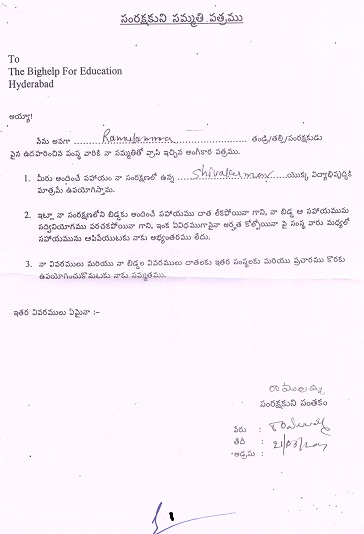 సంరక్షకుని సమ్మతి పత్రము
To
The Bighelp For Education
Hyderabad
అయ్యా!
నేను అనగా Ramulamma తండ్రి/తల్లి/సంరక్షకుడు
పైన ఉదహరించిన సంస్థ వారికి నా సమ్మతితో వ్రాసి ఇచ్చిన అంగీకార పత్రము.
1. మీరు అందించే సహాయం నా సంరక్షణలో ఉన్న Shivakumar యొక్క విద్యాభివృద్ధికి
మాత్రమే ఉపయోగిస్తాను.
2. ఇట్లా నా సంరక్షణలోని బిడ్డకు అందించే సహాయము దాత లేకపోయినా గాని, నా బిడ్డ ఆ సహాయమును
సద్వినియోగము పరచకపోయినా గాని, ఇంక ఏవిధముగానైనా అర్హత కోల్పోయినా పై సంస్థ వారు మధ్యలో
సహాయమును ఆపివేయుటకు నాకు అభ్యంతరము లేదు.
3. నా వివరములు మరియు నా బిడ్డల వివరములు దాతలకు ఇతర సంస్థలకు మరియు ప్రచారము కొరకు
ఉపయోగించుకొనుటకు నాకు సమ్మతము.
ఇతర వివరములు ఏమైనా :-
రాములమ్మ
సంరక్షకుని సంతకం
పేరు :
తేదీ : 21/03/
అడ్రసు :